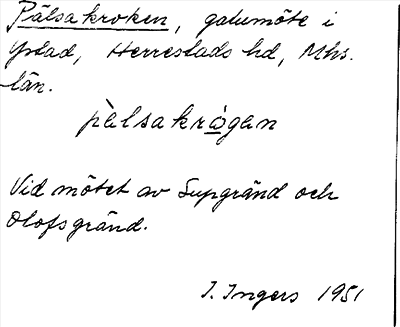 Pälsakroken, gatumöte i
Ystad, Herrestads hd, Mhs.
län.
pälsakrågan
Vid mötet av Supgränd och
Olofsgränd.
I. Ingers 1951